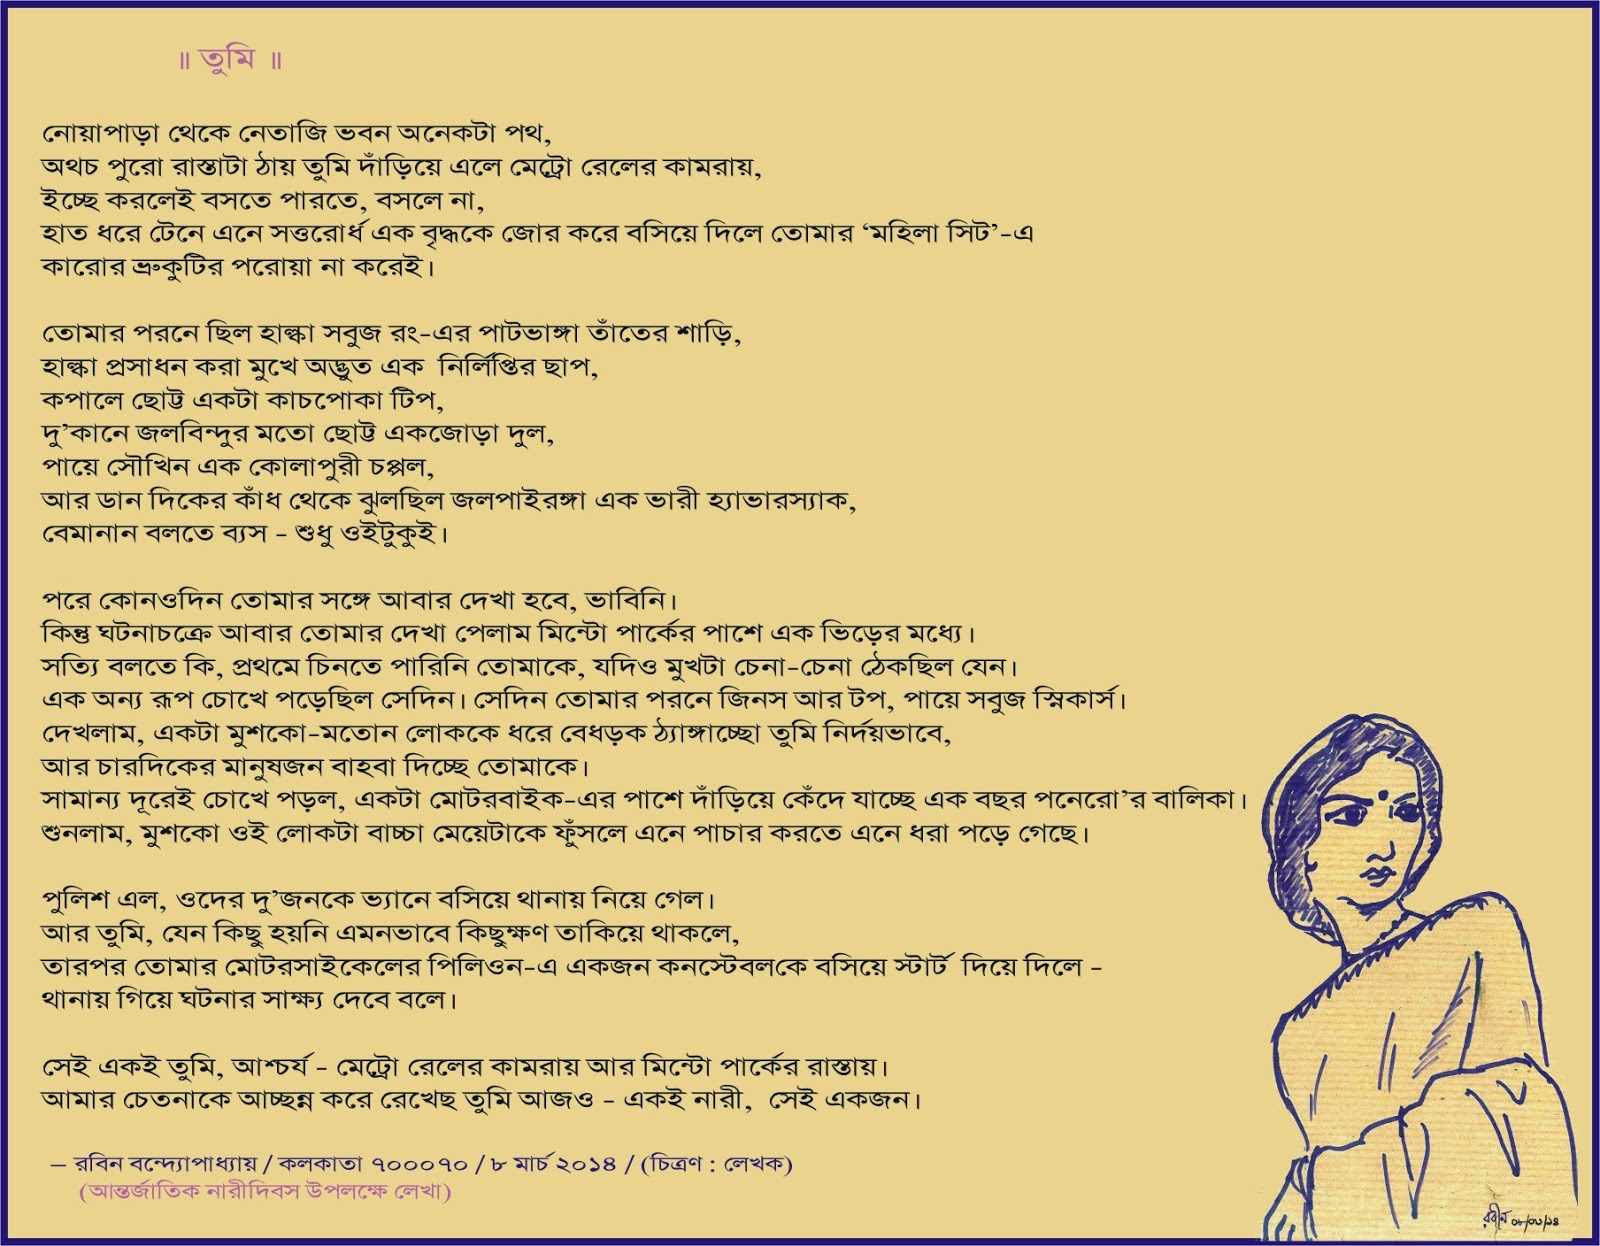 ॥ তুমি ॥
নোয়াপাড়া থেকে নেতাজি ভবন অনেকটা পথ,
অথচ পুরো রাস্তাটা ঠায় তুমি দাঁড়িয়ে এলে মেট্রো রেলের কামরায়,
ইচ্ছে করলেই বসতে পারতে, বসলে না,
হাত ধরে টেনে এনে সত্তরোর্ধ এক বৃদ্ধকে জোর করে বসিয়ে দিলে তোমার ‘মহিলা সিট’-এ
কারোর ভ্রুকুটির পরোয়া না করেই।
তোমার পরনে ছিল হাল্কা সবুজ রং-এর পাটভাঙ্গা তাঁতের শাড়ি,
হাল্কা প্রসাধন করা মুখে অদ্ভুত এক নির্লিপ্তির ছাপ,
কপালে ছোট্ট একটা কাচপোকা টিপ,
দু’কানে জলবিন্দুর মতো ছোট্ট একজোড়া দুল,
পায়ে সৌখিন এক কোলাপুরী চপ্পল,
আর ডান দিকের কাঁধ থেকে ঝুলছিল জলপাইরঙ্গা এক ভারী হ্যাভারস্যাক,
বেমানান বলতে ব্যস - শুধু ওইটুকুই।
পরে কোনওদিন তোমার সঙ্গে আবার দেখা হবে, ভাবিনি।
কিন্তু ঘটনাচক্রে আবার তোমার দেখা পেলাম মিন্টো পার্কের পাশে এক ভিড়ের মধ্যে।
সত্যি বলতে কি, প্রথমে চিনতে পারিনি তোমাকে, যদিও মুখটা চেনা-চেনা ঠেকছিল যেন।
এক অন্য রূপ চোখে পড়েছিল সেদিন। সেদিন তোমার পরনে জিনস আর টপ, পায়ে সবুজ স্নিকার্স।
দেখলাম, একটা মুশকো-মতোন লোককে ধরে বেধড়ক ঠ্যাঙ্গাচ্ছো তুমি নির্দয়ভাবে,
আর চারদিকের মানুষজন বাহবা দিচ্ছে তোমাকে।
সামান্য দূরেই চোখে পড়ল, একটা মোটরবাইক-এর পাশে দাঁড়িয়ে কেঁদে যাচ্ছে এক বছর পনেরো’র বালিকা।
শুনলাম, মুশকো ওই লোকটা বাচ্চা মেয়েটাকে ফুঁসলে এনে পাচার করতে এনে ধরা পড়ে গেছে।
পুলিশ এল, ওদের দু’জনকে ভ্যানে বসিয়ে থানায় নিয়ে গেল।
আর তুমি, যেন কিছু হয়নি এমনভাবে কিছুক্ষণ তাকিয়ে থাকলে,
তারপর তোমার মোটরসাইকেলের পিলিওন-এ একজন কনস্টেবলকে বসিয়ে স্টার্ট দিয়ে দিলে -
থানায় গিয়ে ঘটনার সাক্ষ্য দেবে বলে।
সেই একই তুমি, আশ্চর্য - মেট্রো রেলের কামরায় আর মিন্টো পার্কের রাস্তায়।
আমার চেতনাকে আচ্ছন্ন করে রেখেছ তুমি আজও - একই নারী, সেই একজন।
– রবিন বন্দ্যোপাধ্যায় / কলকাতা ৭০০০৭০ / ৮ মার্চ ২০১৪ / (চিত্রণ : লেখক)
(আন্তর্জাতিক নারীদিবস উপলক্ষে লেখা)
রবীন ০৮/০৩/১৪